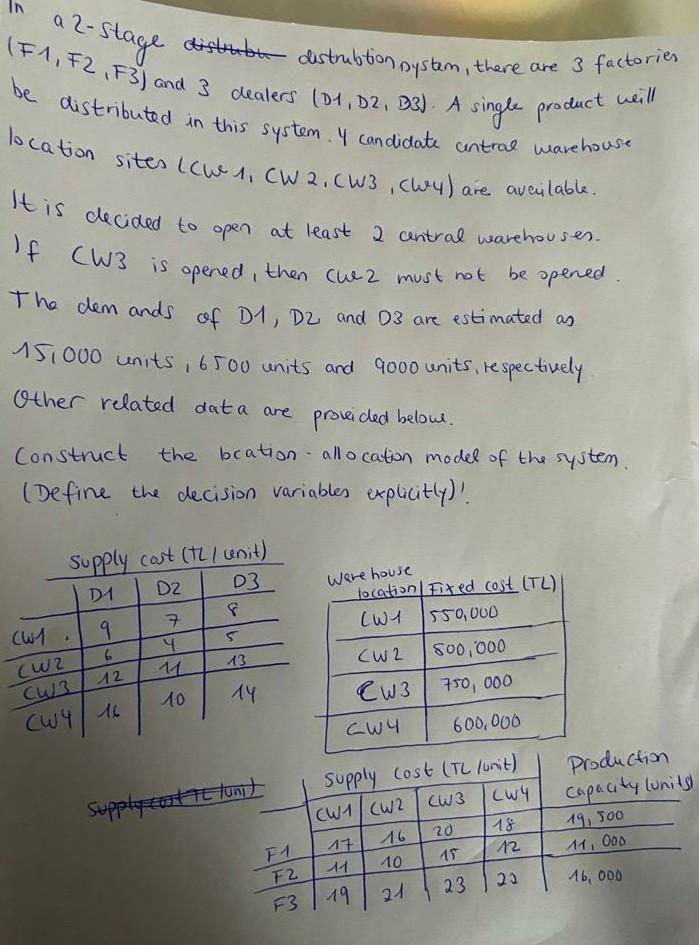 In a 2-stage distrubtion system, there are 3 factories
(F1, F2, F3) and 3 dealers (D1, D2, D3). A single product will
be distributed in this system. 4 candidate central warehouse
location sites (CW1, CW2, CW3, CW4) are available.
It is decided to open at least 2 central warehouses.
If CW3 is opened, then CW2 must not be opened.
The demands of D1, D2 and D3 are estimated as
15,000 units, 6500 units and 9000 units, respectively
Other related data are provided below.
Construct the location-allocation model of the system.
(Define the decision variables explicitly)!
Supply cost (TL/unit)
D1 D2 D3
CW1. 9 7 8
CW2 6 4 5
CW3 12 11 13
CW4 16 10 14
Warehouse
location Fixed cost (TL)
CW1 550,000
CW2 800,000
CW3 750,000
CW4 600,000
Supply cost TL/unit
Supply cost (TL/unit) Production
CW1 CW2 CW3 CW4 capacity (units)
F1 17 16 20 18 19,500
F2 11 10 15 12 11,000
F3 19 21 23 16,000